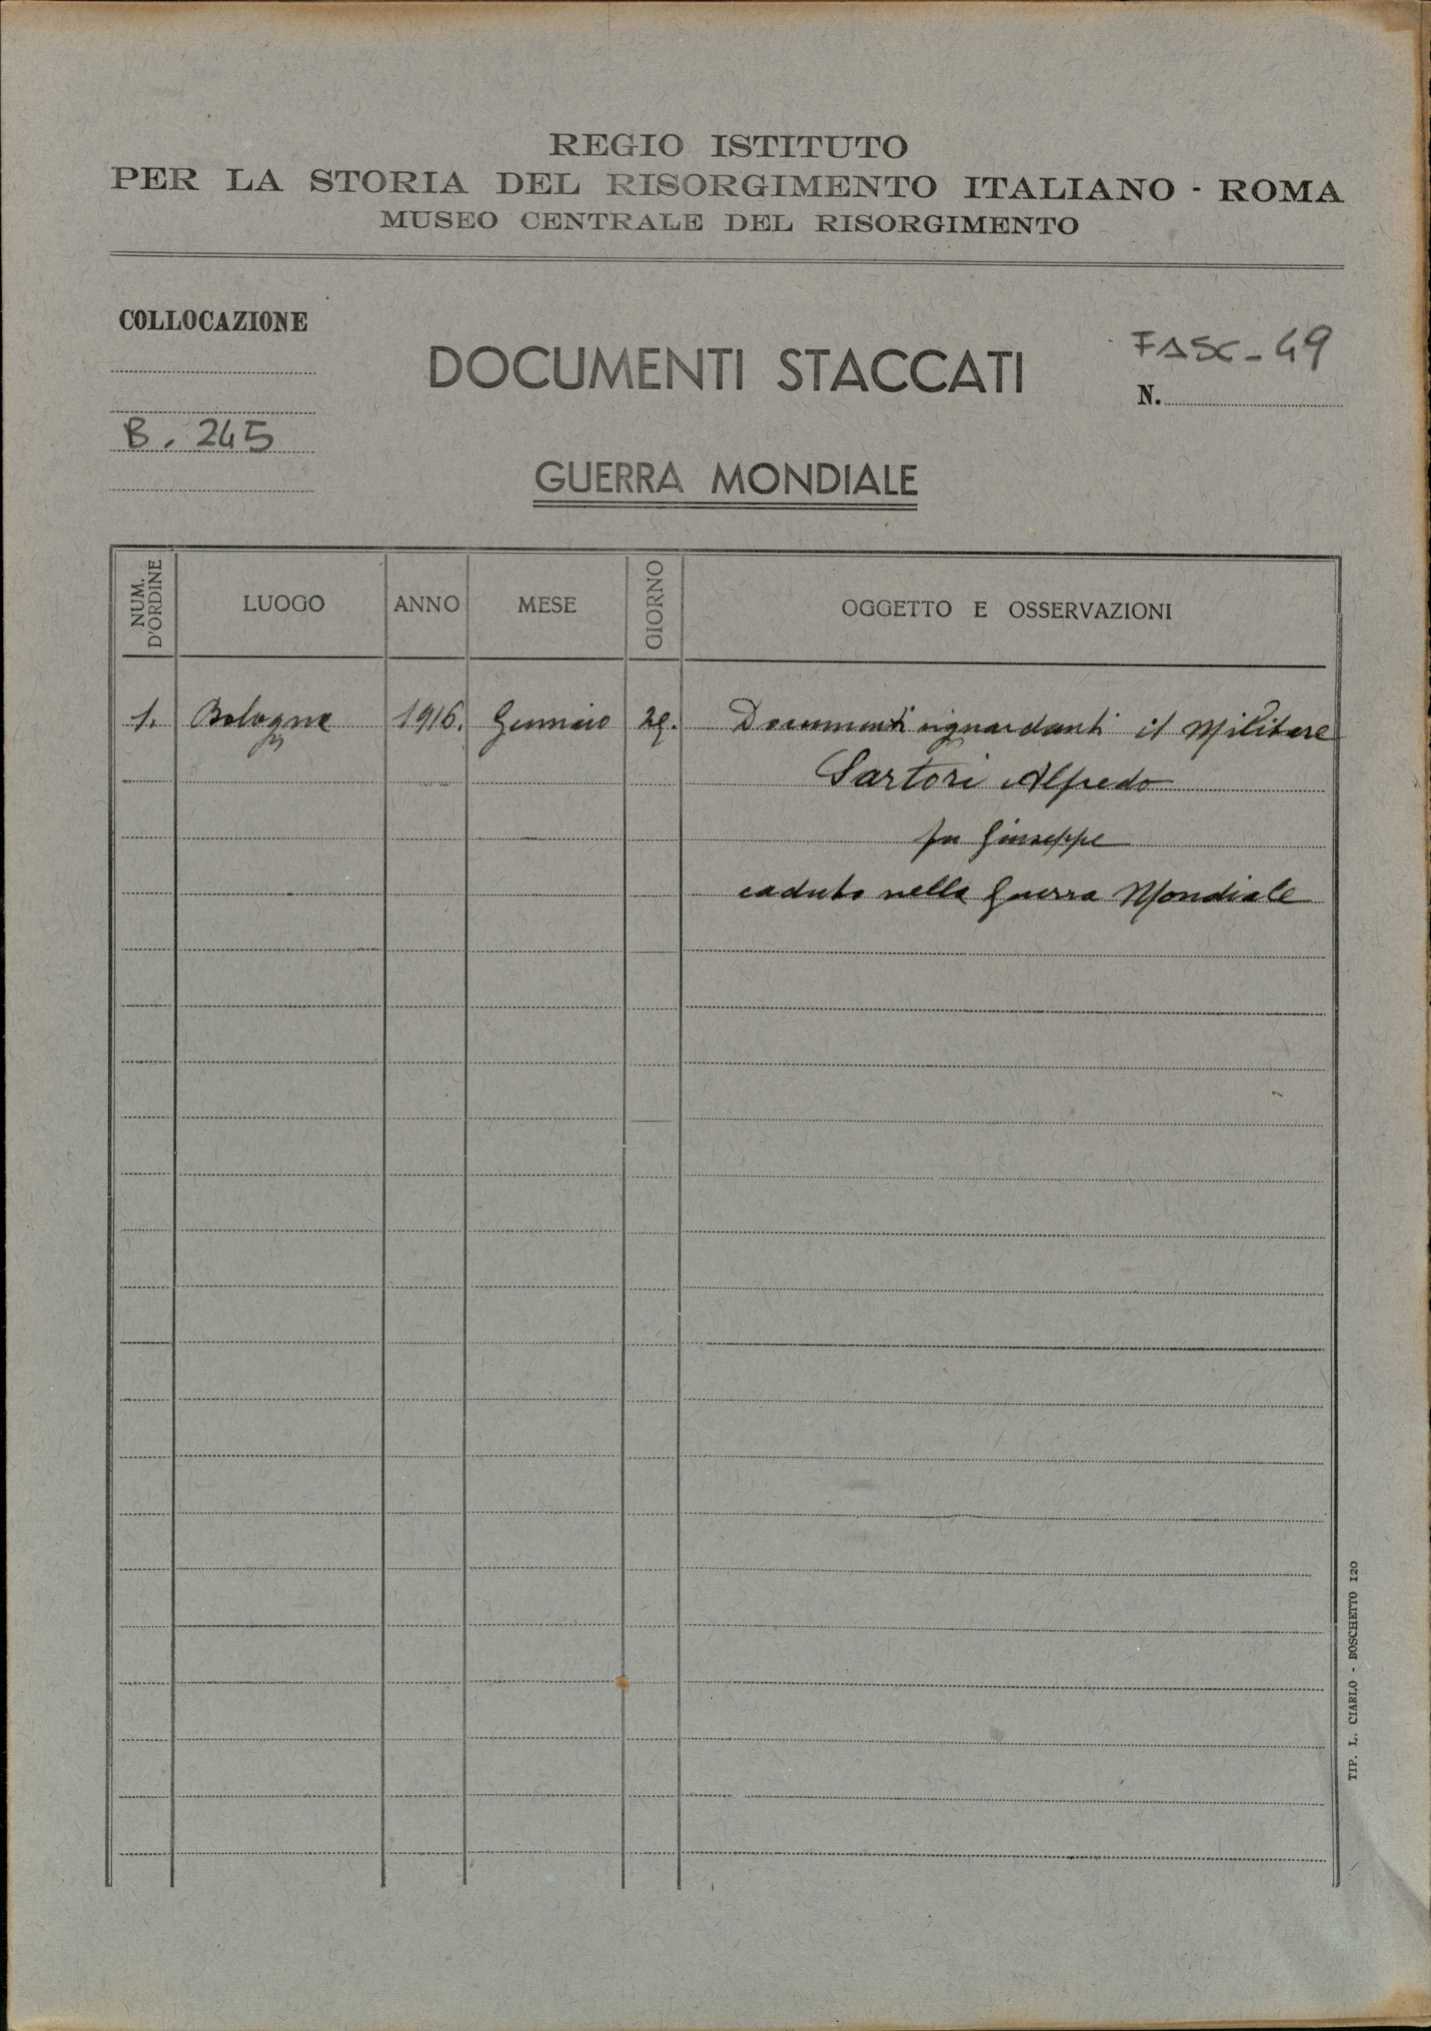 REGIO ISTITUTO
PER LA STORIA DEL RISORGIMENTO ITALIANO - ROMA
MUSEO CENTRALE DEL RISORGIMENTO
COLLOCAZIONE
B. 245
DOCUMENTI STACCATI
GUERRA MONDIALE
FASC - 49
N.
NUM. D'ORDINE LUOGO ANNO MESE GIORNO OGGETTO E OSSERVAZIONI
1. Bologna 1916. Gennaio 29. Documenti riguardanti il Militare
Sartori Alfredo
fu Giuseppe
caduto nella Guerra Mondiale
TIP. L. CIARLO - BOSCHETTO 120